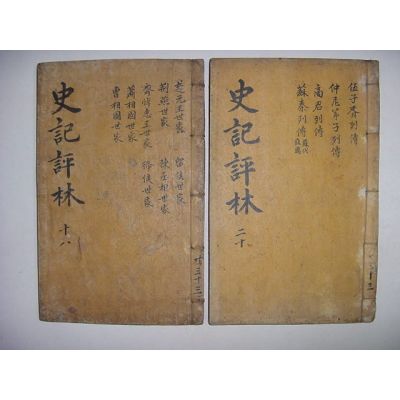 史記評林
十八
楚元王世家
荊燕世家
齊悼惠王世家
蕭相國世家
曹相國世家
留侯世家
陳丞相世家
絳侯世家
共三十三
史記評林
二十
伍子胥列傳
仲尼弟子列傳
商君列傳
蘇秦列傳